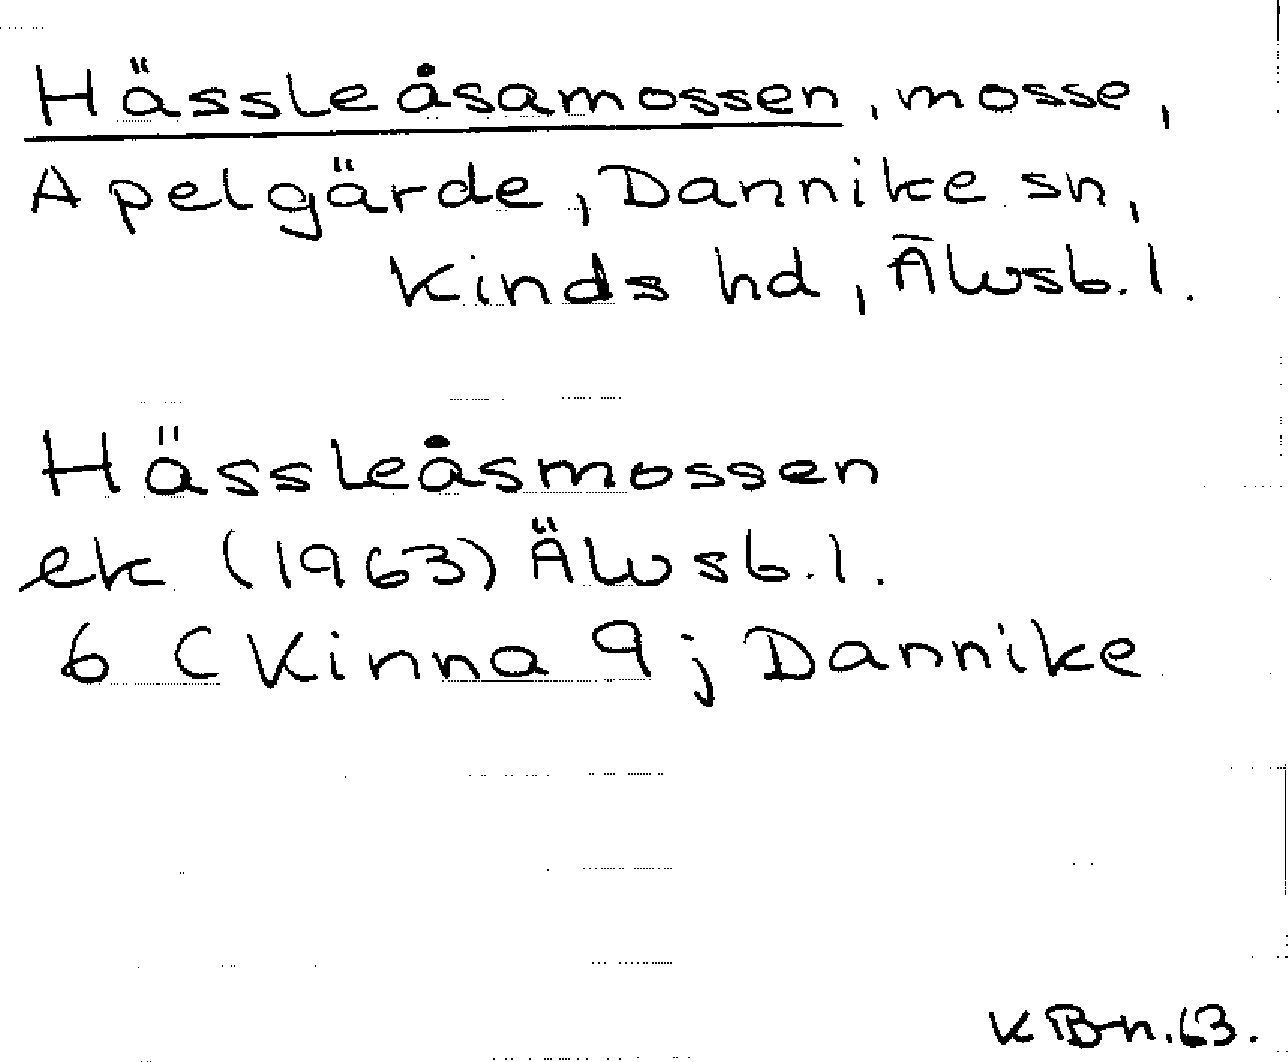 Hässleåsamossen, mosse,
Apelgärde, Dannike sn,
Kinds hd, Älvsb. l.
Hässleåsmossen
ek (1963) Älvsb. l.
6 C Kinna 9 j Dannike
K Bn. 63.